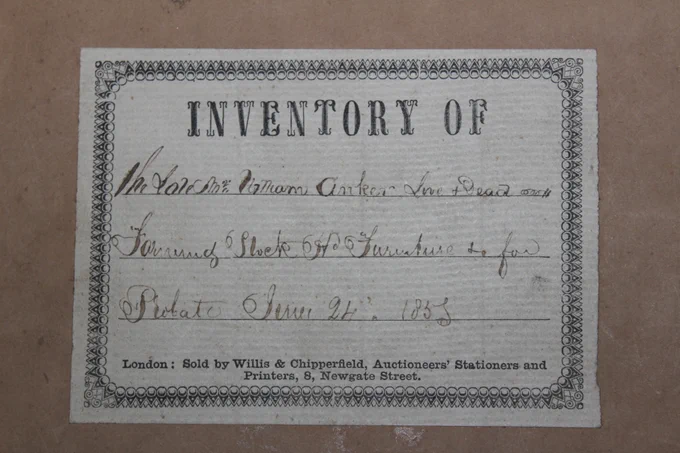 INVENTORY OF
The Late Mr. William Anker Live & Dead
Farming Stock Hd Furniture &c for
Probate June 24th 185
London: Sold by Willis & Chipperfield, Auctioneers' Stationers and
Printers, 8, Newgate Street.